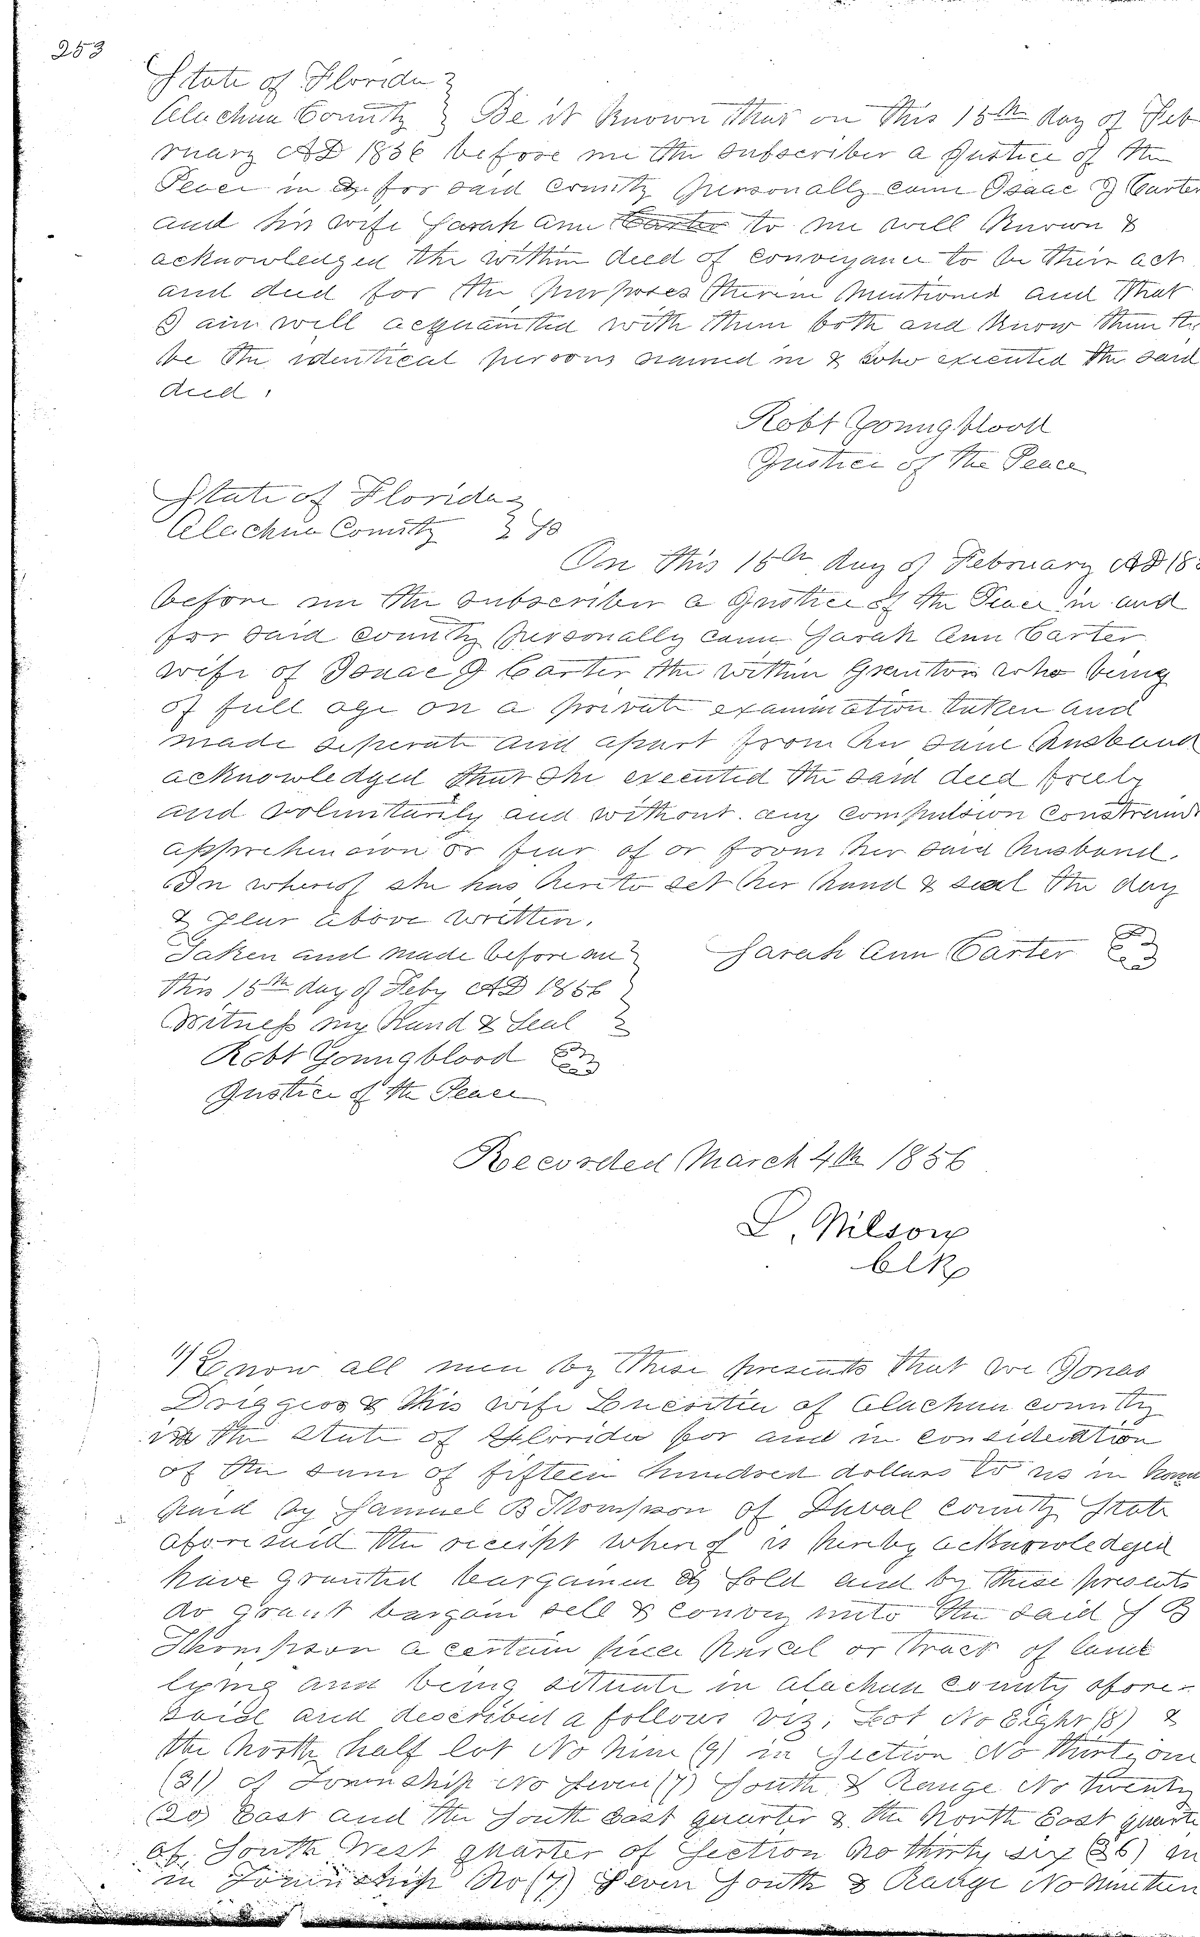 253
State of Florida }
Alachua County } Be it known that on this 15th day of Feb
ruary AD 1856 before me the subscriber a Justice of the
Peace in & for said county personally came Isaac J Carter
and his wife Sarah Ann Carter to me well known &
acknowledged the within deed of conveyance to be their act
and deed for the purposes therein mentioned and that
I am well acquainted with them both and know them to
be the identical persons named in & who executed the said
deed.
Robt Youngblood
Justice of the Peace
State of Florida }
Alachua County }
On this 15th day of February AD 185
before me the subscriber a Justice of the Peace in and
for said county personally came Sarah Ann Carter
wife of Isaac J Carter the within Grantor who being
of full age on a private examination taken and
made seperate and apart from her said husband
acknowledged that she executed the said deed freely
and voluntarily and without any compulsion constraint
apprehension or fear of or from her said husband.
In whereof she has hereto set her hand & seal the day
& year above written.
Taken and made before me }
Sarah Ann Carter
this 15th day of Feby AD 1856 }
Witness my Hand & Seal }
Robt Youngblood
Justice of the Peace
Recorded March 4th 1856
L. Wilson
Clk
Know all men by these presents that we Jonas
Driggers & his wife of Alachua county
in the State of Florida for and in consideration
of the sum of fifteen hundred dollars to us in hand
paid by Samuel B Thompson of Duval County State
aforesaid the receipt whereof is hereby acknowledged
have granted bargained & sold and by these presents
do grant bargain sell & convey unto the said S B
Thompson a certain piece parcel or tract of land
lying and being situate in Alachua county afore-
said and described a follows viz. Lot No Eight (8) &
the North half lot No nine (9) in Section No thirty one
(31) of Township No Seven (7) South & Range No twenty
(20) East and the South East quarter & the North East quarte
of South West quarter of Section No thirty six (36) in
in Township No (7) Seven South & Range No nineteen